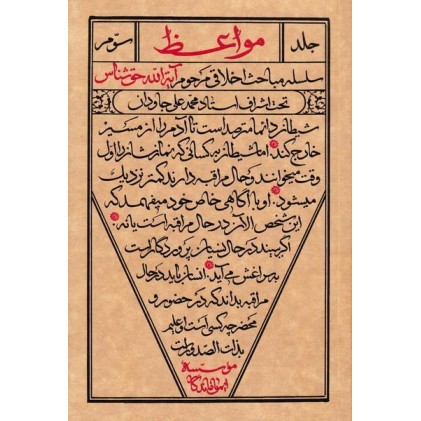 جلد مواعظ سوم
سلسله مباحث اخلاقی مرحوم آیة الله حق شناس
تحت اشراف استاد محمد علی جاودان
شیطان دائما مترصد است تا آدم را از مسیر
خارج کند اما شیطان به کسانی که نمازشان را اول
وقت میخوانند و حال مراقبه دارند کمتر نزدیک
میشود او با آگاهی خاص خود میفهمد که
این شخص الآن در حال مراقبه است یا نه
اگر ببیند در حال نسیان پروردگار است
به سراغش می آید انسان باید در حال
مراقبه بداند که در حضور و
محضر چه کسی است او علیم
بذات الصدور است
موسسه